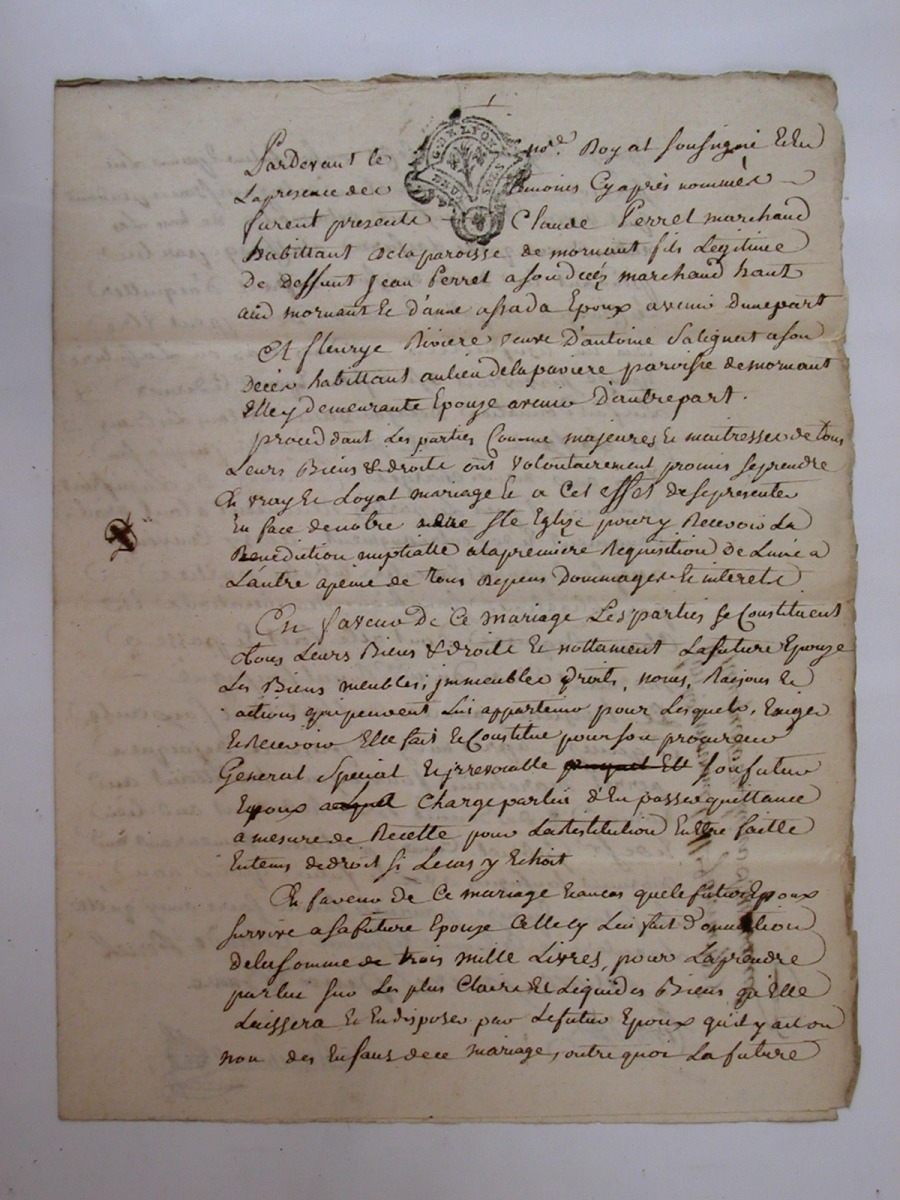 Pardevant le no.re Royal soussigné et en
La presence des temoins Cy après nommés
furent presents Claude Perret marchand
habittant de la paroisse de mornant fils Legitime
de deffunt Jean Perret a son decés marchand
aud mornant et d'anne assada Epoux avenir d'une part
Et fleurye Riviere veuve d'antoine a son
Decés habittant au lieu de la paroisse de mornant
Elle y demeurante Epouze avenir D'autre part.
procedant Les parties Comme majeures et maitresses de tous
Leurs Biens & droits ont volontairement promis se prendre
En vray et Loyal mariage et a Cet effet de se presenter
En face de notre ste Eglise pour y Recevoir La
Benediction nuptialle a la premiere Requisition de L'une a
L'autre a peine de Tous depens Dommages et interets
En faveur de Ce mariage Les parties se Constituent
tous Leurs Biens & droits et nottament La future Epouze
Les Biens meubles, immeubles droits, noms, Raisons et
actions qui peuvent Lui appartenir pour Lesquels, Exiger
et Recevoir Elle fait et Constitue pour son procureur
General Special et irrevocable son futur
Epoux a Charge par lui d'En passer quittance
a mesure de Recette pour La Restitution En Etre faitte
En tems de droit si Le cas y Echoit
En faveur de Ce mariage En cas que le futur Epoux
survive a sa future Epouze Celle cy Lui fait Donnation
de la somme de trois mille Livres, pour La prendre
par lui sur Les plus Clairs et Liquides Biens qu'Elle
Laissera et En disposer par Le futur Epoux qu'il y ait ou
non des Enfans de ce mariage, outre quoi La future